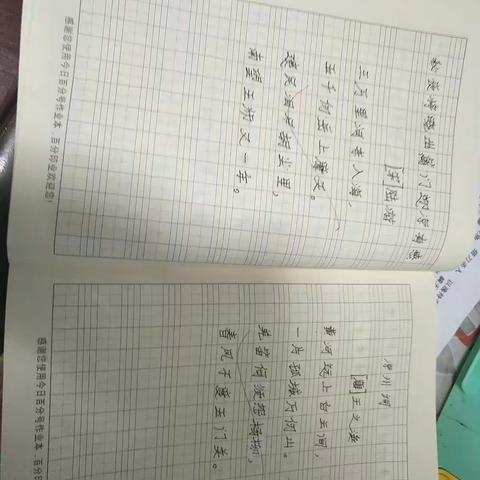 秋夜将晓出篱门迎凉有感
[宋]陆游
三万里河东入海,
五千仞岳上摩天。
遗民泪尽胡尘里,
南望王师又一年。
感谢您使用今日百分号作业本,百分印业欢迎您!
[唐]王之涣
黄河远上白云间,
一片孤城万仞山。
羌笛何须怨杨柳,
春风不度玉门关。
感谢您使用今日百分号作业本,百分印